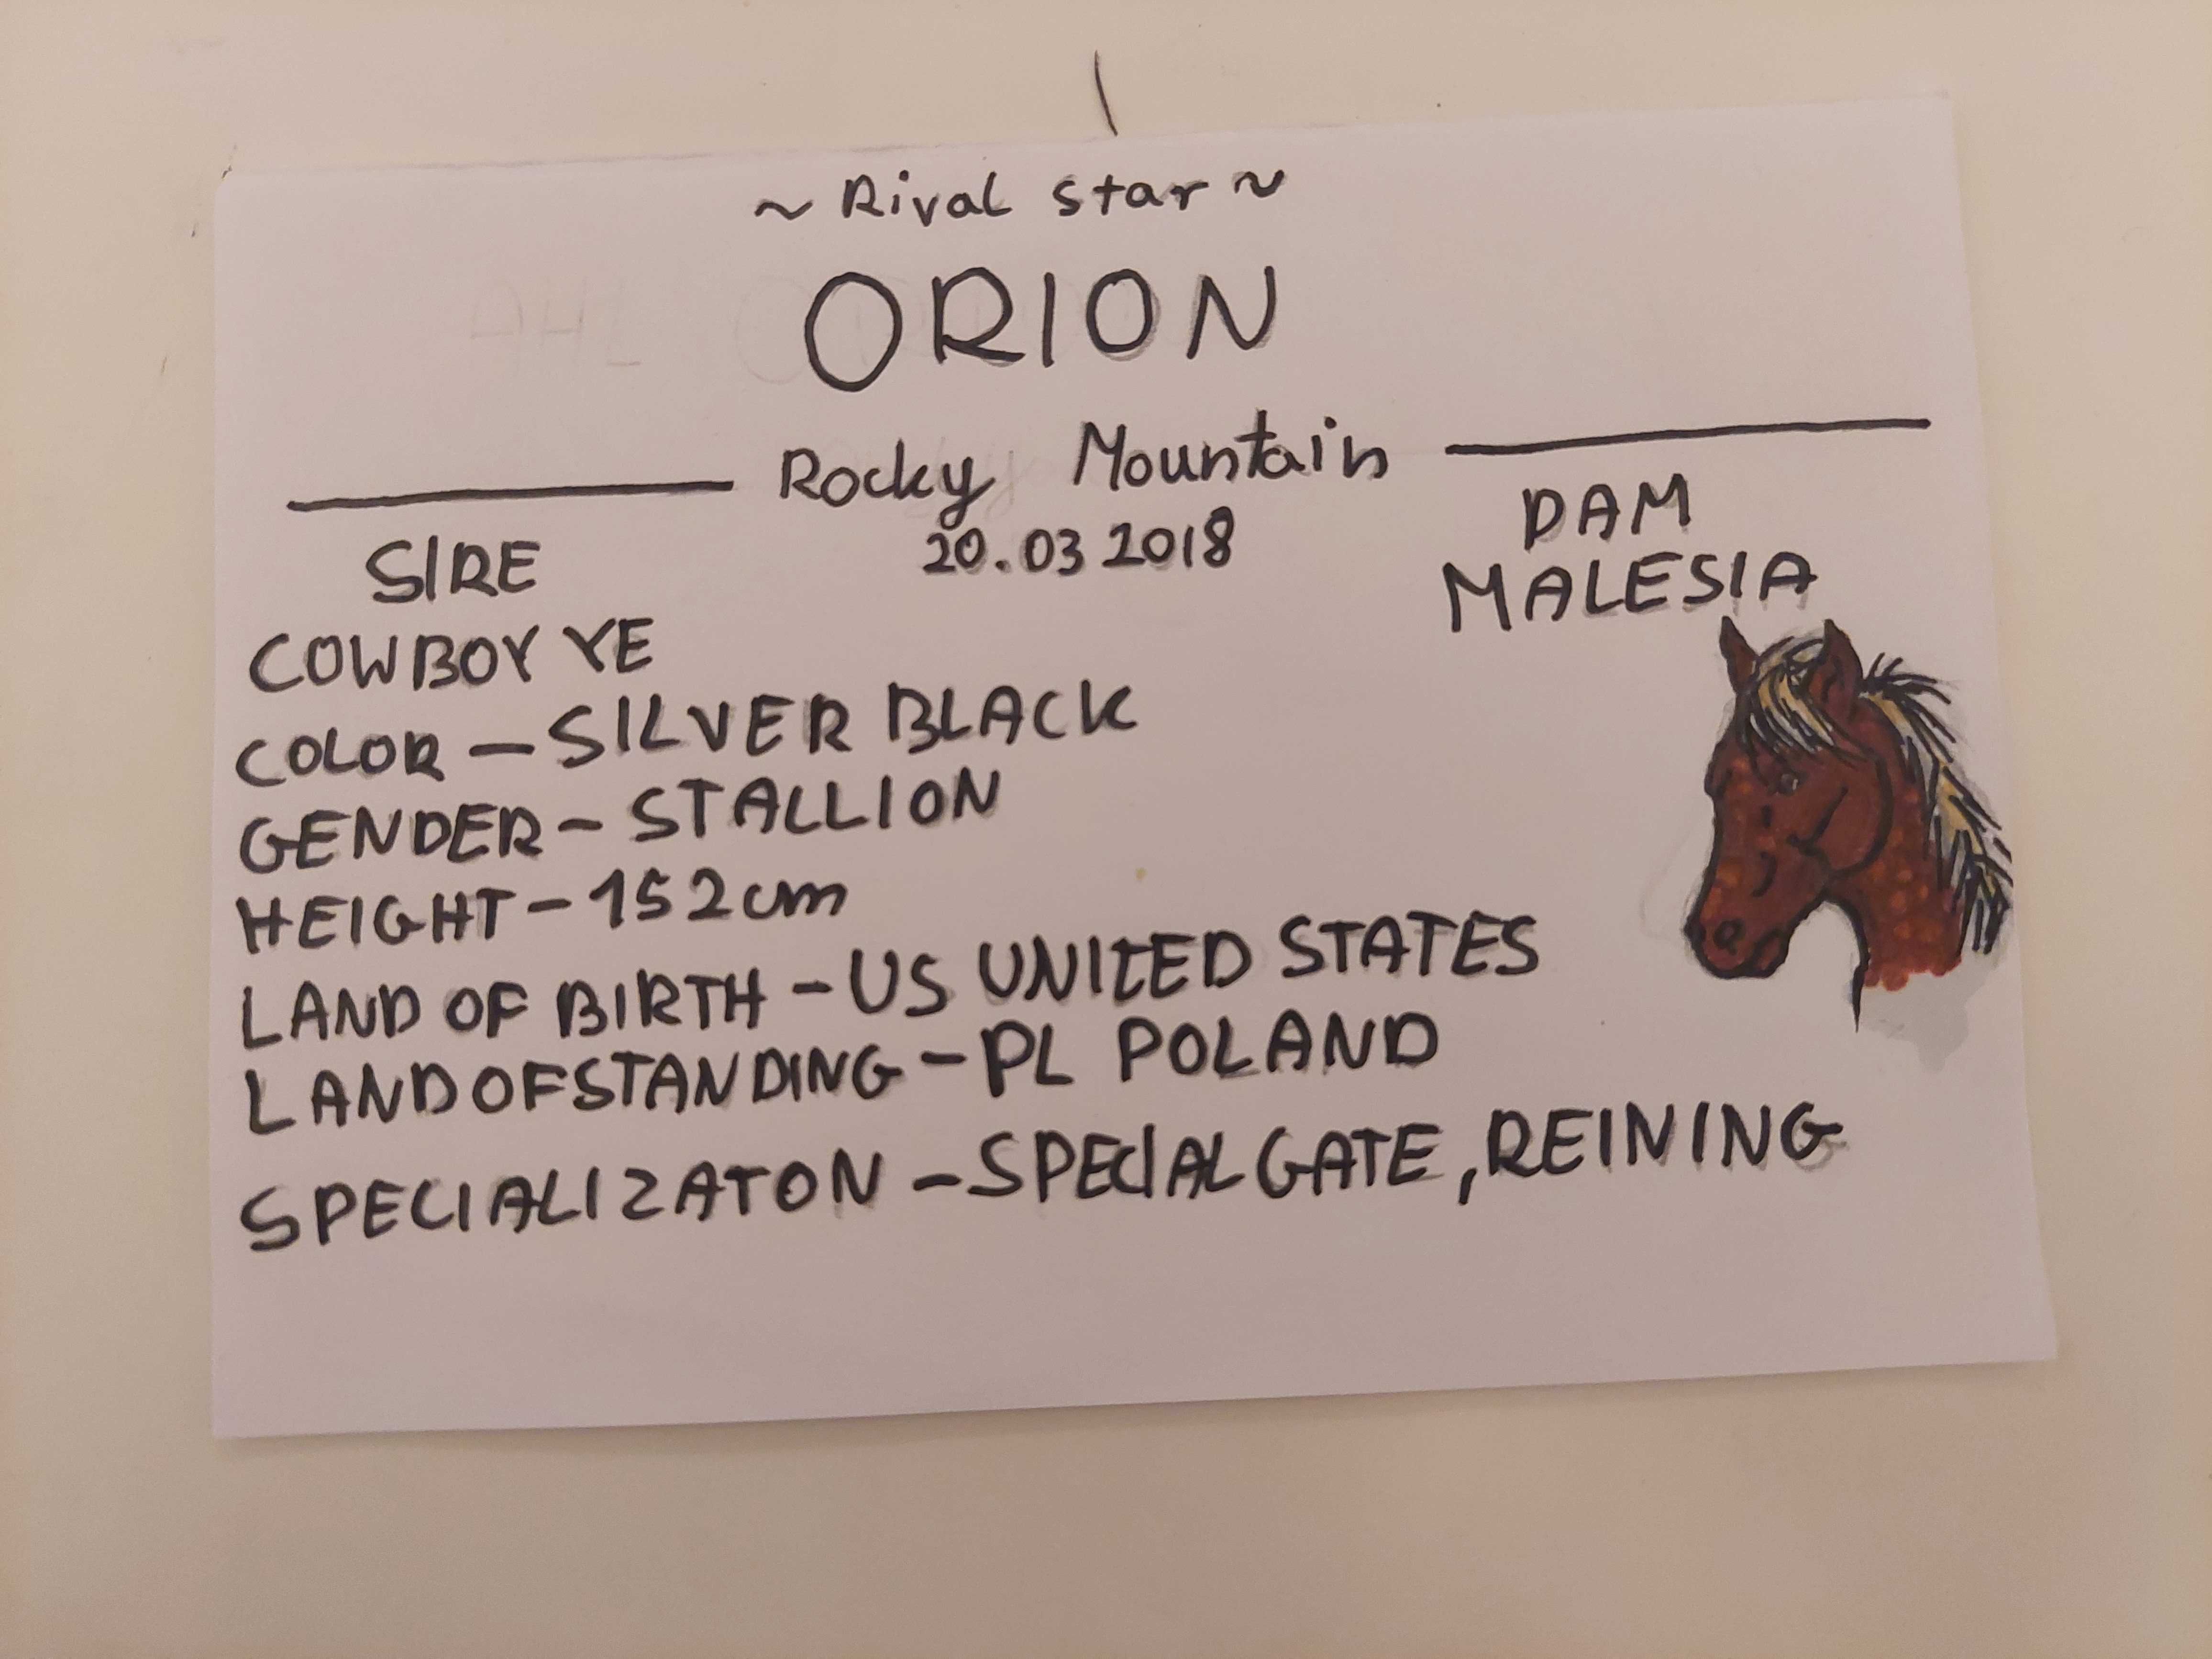 ~ Rival star ~
ORION
Rocky Mountain
20.03 2018
SIRE
COWBOY YE
DAM
MALESIA
COLOR – SILVER BLACK
GENDER – STALLION
HEIGHT – 152cm
LAND OF BIRTH – US UNITED STATES
LAND OF STANDING – PL POLAND
SPECIALIZATON – SPECIAL GATE, REINING